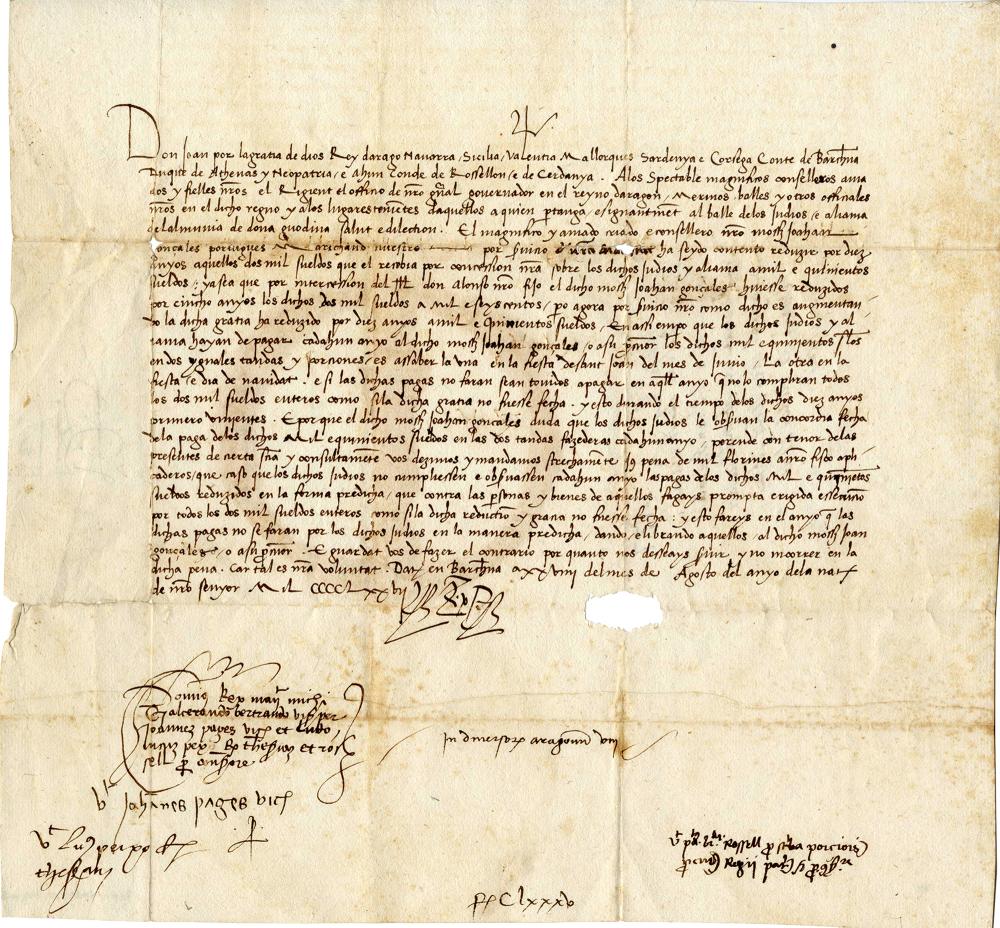 Don Joan por la gratia de dios Rey darago Navarra, Sicilia, Valentia Mallorques Sardenya e Corsega Conte de Barchna
Duque de Athenas y Neopatria, e Ahun Conde de Rossellon, e de Cerdanya. Alos Spectable magnificos conselleros ama
dos y fielles nros el Rigient el officio de nro gnal governador en el reyno daragon, Merinos, balles y otros officiales
nros en el dicho regno y alos lugarestenetes daquellos a quien ptanga, e signantmet al balle delos Judios, e aliama
del almunia de dona guodina salut e dilection. El magnifico y amado criado e consellero nro mossn Joahan
Goncales portugues Marichando nuestro por suvicio ha seydo contento reduzir por diez
anyos aquellos dos mil sueldos que el recebia por concession nra sobre los dichos Judios y aliama a mil e quinientos
sueldos, ya sea que por intercession del Ill don Alonso nro fijo el dicho mossn Joahan goncales huviesse reduzidos
por cincho anyos los dichos dos mil sueldos a Mil e seyscentos, po agora por suvicio nro como dicho es augmentan
do la dicha gratia ha reduzido por diez anyos a mil e Quinientos sueldos, En assi empo que los dichos Judios y al
iama hayan de pagar cadahun anyo al dicho mossn Joahan goncales, o a su pcuror los dichos mil e quinientos slos
en dos yguales tandas y porciones, es assaber la una en la fiesta de sant Joan del mes de Junio, La otra en la
fiesta e dia de navidat. e si las dichas pagas no faran sean tovidos a pagar en aqll anyo q no lo compliran todos
los dos mil sueldos enteros como si la dicha gratia no fuesse fecha. y esto durando el tiempo delos dichos diez anyos
primero vinientes. E porque el dicho mossn Joahan goncales duda que los dichos Judios le observan la concordia fecha
de la paga delos dichos Mil e quinientos sueldos en las dos tandas fazederas cadahun anyo, porende con tenor delas
presentes de certa scia y consultamete vos dezimos y mandamos strechamete so pena de mil florines a nro fisco apli
caderos, que caso que los dichos Judios no cumpliessen e observassen cadahun anyo las pagas delos dichos Mil e quinietos
sueldos reduzidos en la forma predicha, que contra las psonas y bienes de aquellos fagays prompta e rigida essecucio
por todos los dos mil sueldos enteros como si la dicha reduction y gracia no fuesse fecha: y esto fareys en el anyo q las
dichas pagas no se faran por los dichos Judios en la manera predicha, dando, e librando aquellos, al dicho mossn Joan
goncales, o a su pcuror. E guardat vos de fazer el contrario por quanto nos desseays suir, y no incorrer en la
dicha pena. Car tal es nra voluntat. Dat en Barchna a xxviiii del mes de Agosto del anyo dela nat
de nro senyor Mil CCCCLxxvii
Dominus Rex mat michi
Galcerando bertrando vis per
Joannez pages vicn et
et ros
sell p
vt Johanes pages vicn
In diversorx aragonum viii
Rossell p
Regii
CLxxxv